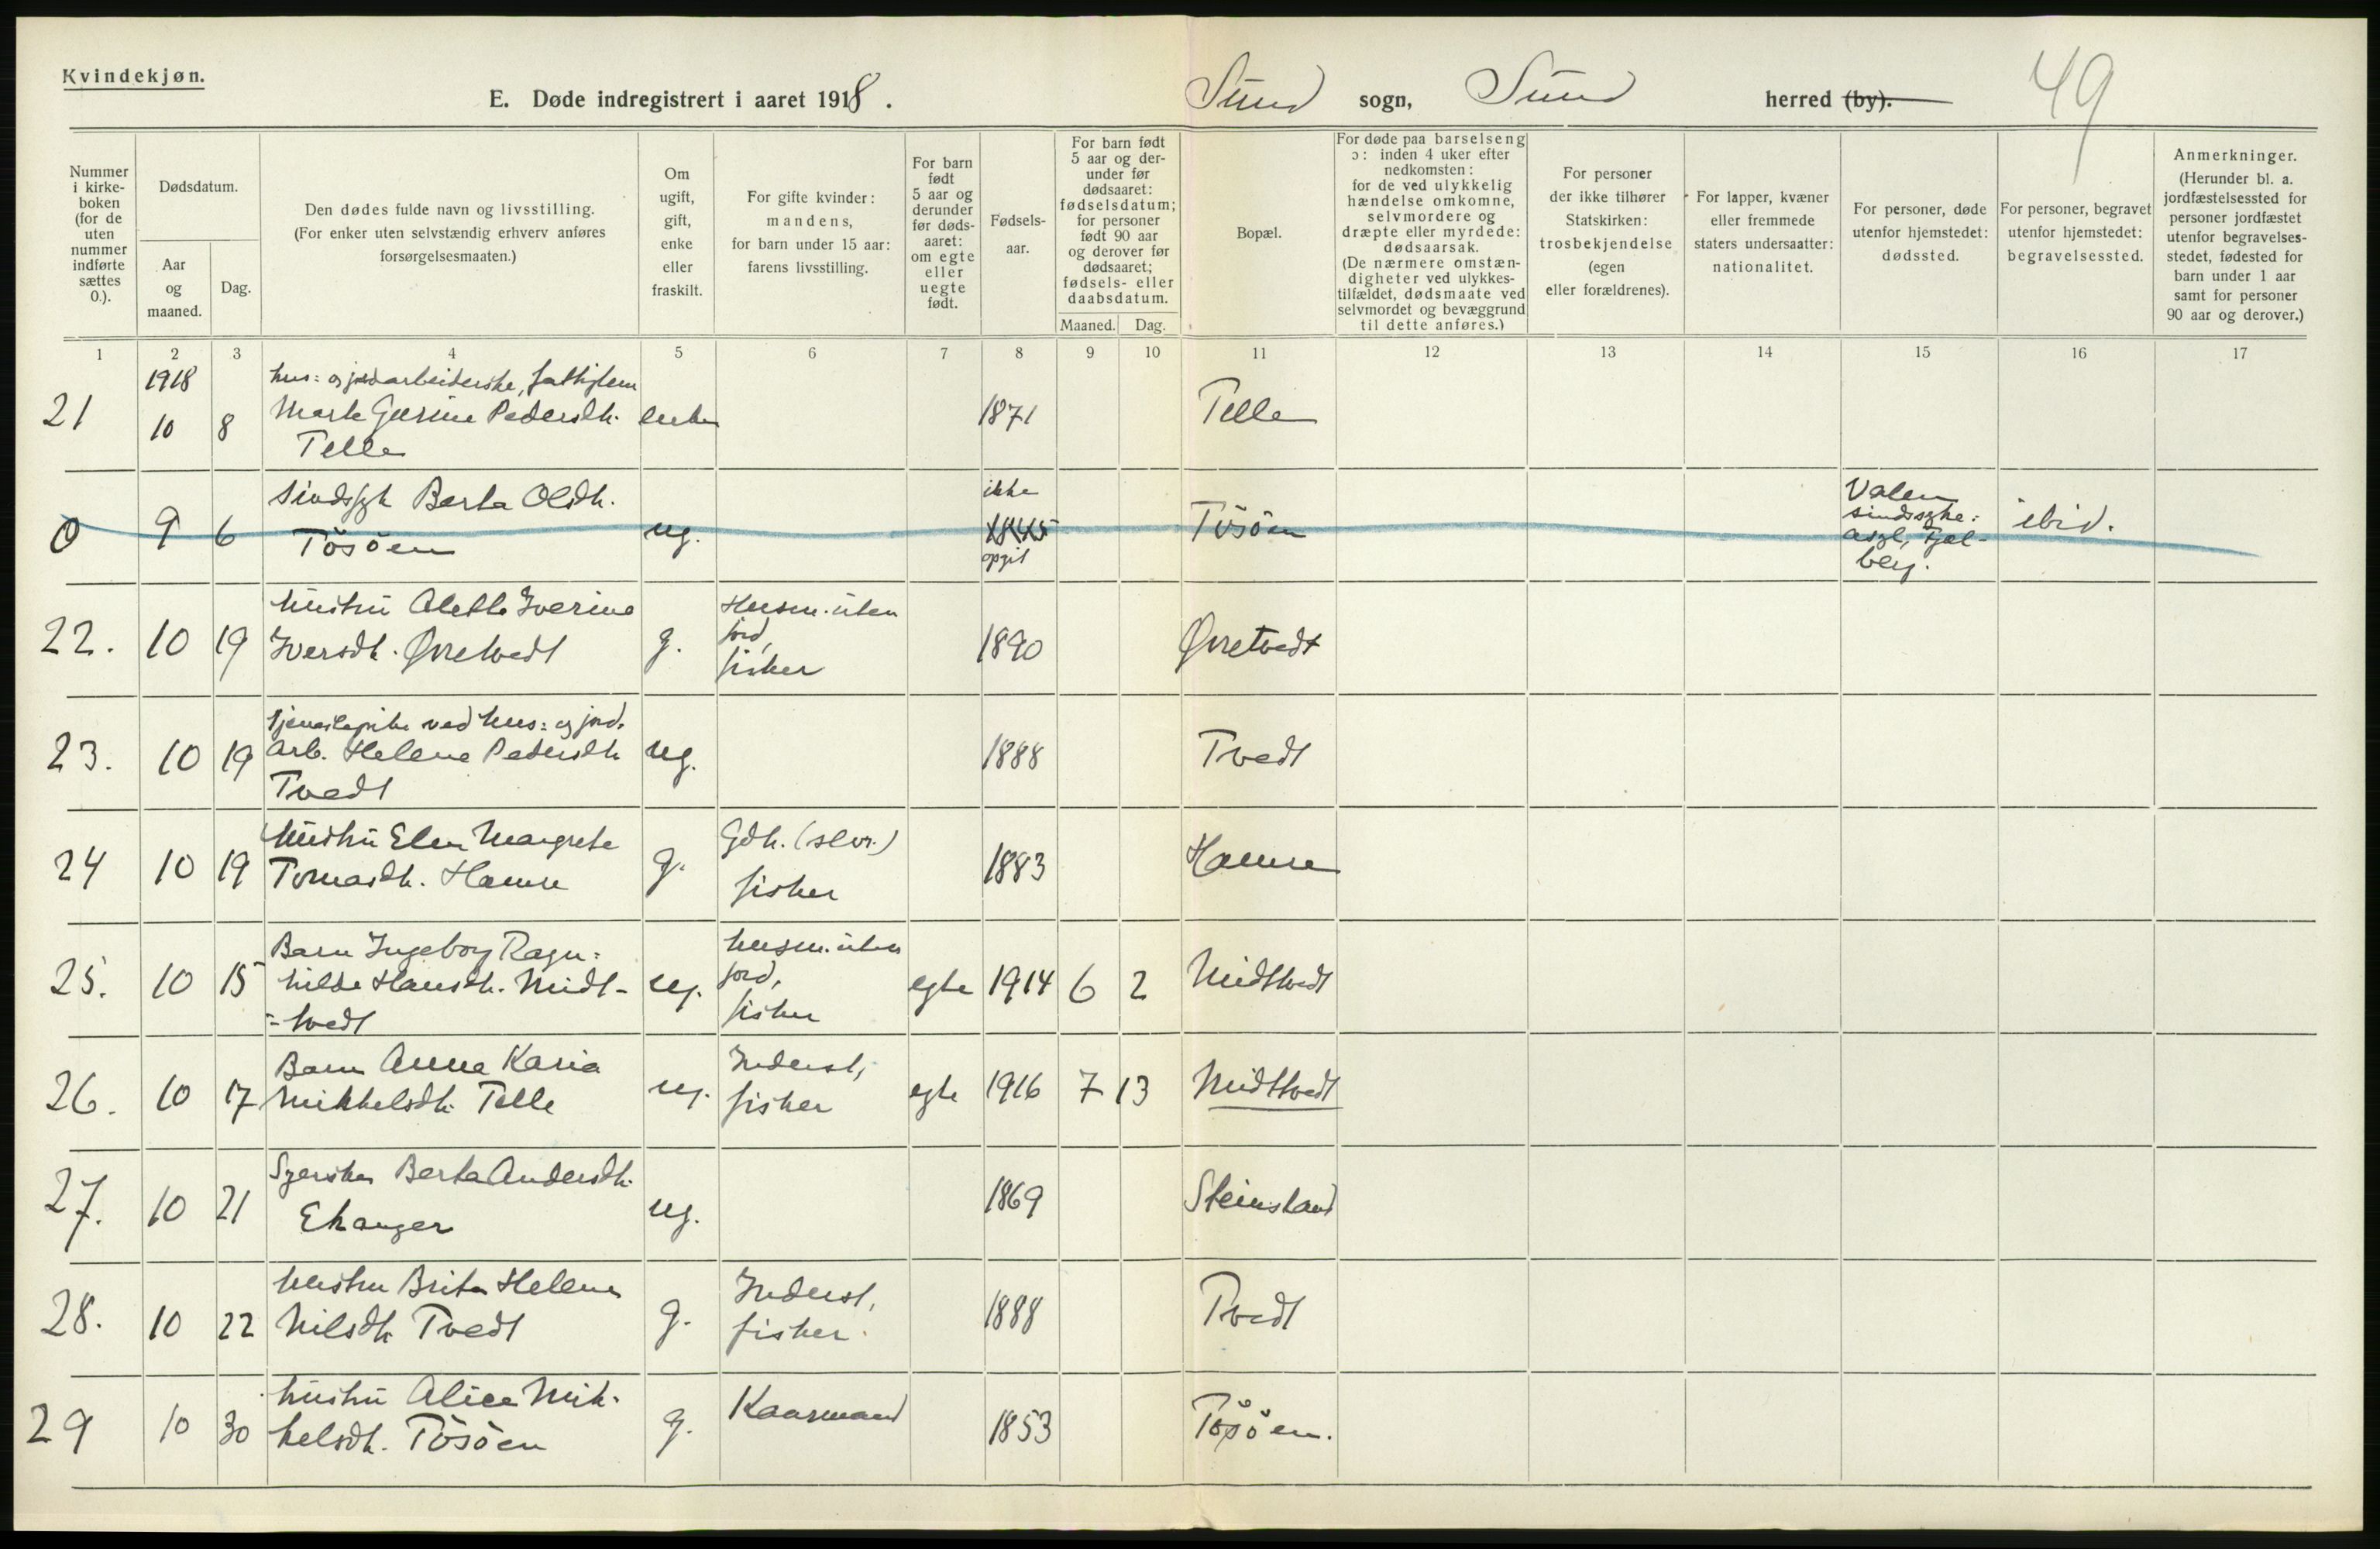 Kvindekjøn.
E. Døde indregistrert i aaret 1918.
Sund sogn, Sund herred (by).
49
Nummer i kirke-boken (for de uten nummer indførte sættes 0.).
Dødsdatum.
Aar og maaned.
Dag.
Den dødes fulde navn og livsstilling.
(For enker uten selvstændig erhverv anføres
forsørgelsesmaaten.)
Om ugift, gift, enke eller fraskilt.
For gifte kvinder:
mandens,
for barn under 15 aar:
farens livsstilling.
For barn født 5 aar og derunder før døds-aaret: om egte eller uegte født.
Fødsels-aar.
For barn født 5 aar og der-under før dødsaaret: fødselsdatum; for personer født 90 aar og derover før dødsaaret; fødsels- eller daabsdatum.
Maaned.
Dag.
Bopæl.
For døde paa barselseng
ɔ: inden 4 uker efter
nedkomsten:
for de ved ulykkelig
hændelse omkomne,
selvmordere og
dræpte eller myrdede:
dødsaarsak.
(De nærmere omstæn-
digheter ved ulykkes-
tilfældet, dødsmaate ved
selvmordet og bevæggrund
til dette anføres.)
For personer
der ikke tilhører
Statskirken:
trosbekjendelse
(egen
eller forældrenes).
For lapper, kvæner
eller fremmede
staters undersaatter:
nationalitet.
For personer, døde
utenfor hjemstedet:
dødssted.
For personer, begravet
utenfor hjemstedet:
begravelsessted.
Anmerkninger.
(Herunder bl. a.
jordfæstelsessted for
personer jordfæstet
utenfor begravelses-
stedet, fødested for
barn under 1 aar
samt for personer
90 aar og derover.)
1 2 3 4 5 6 7 8 9 10 11 12 13 14 15 16 17
1918 hus= og jordarbeiderske,
21 10 8 Marta Gurine Pedersdtr. enke 1871 Telle
Telle
Sindssyk Berta Olsdtr. ikke Valen
0 9 6 Tösöen ug. 1845 Tösöen sindssyke= ibid.
opgit asyl, Fjel-
berg.
22. 10 19 hustru Alette Iverine Husm. uten
Iversdtr. Øvretvedt g. jord, 1890 Øvretvedt
fisker
23. 10 19 tjenestepike ved hus= og jord.
arb. Helene Pedersdtr. ug. 1888 Tvedt
Tvedt
24 10 19 hustru Elen Margrete Gdb. (selv.)
Tomasdtr. Hamre g. fisker 1883 Hamre
25. 10 15 Barn Ingeborg Ragn= husm. uten
hilda Hansdtr. Midt- ug. jord, egte 1914 6 2 Midttvedt
=tvedt fisker
26. 10 17 Barn Anna Karia Inderst,
Mikkelsdtr. Telle ug. fisker egte 1916 7 13 Midttvedt
27. 10 21 Syerske Berta Andersdtr.
Ekanger ug. 1869 Steinsland
28. 10 22 hustru Brita Helene Inderst,
Nilsdtr. Tvedt g. fisker. 1888 Tvedt
29 10 30 hustru Alice Mik=
kelsdtr. Tösöen g. Kaarmand 1853 Tösöen.